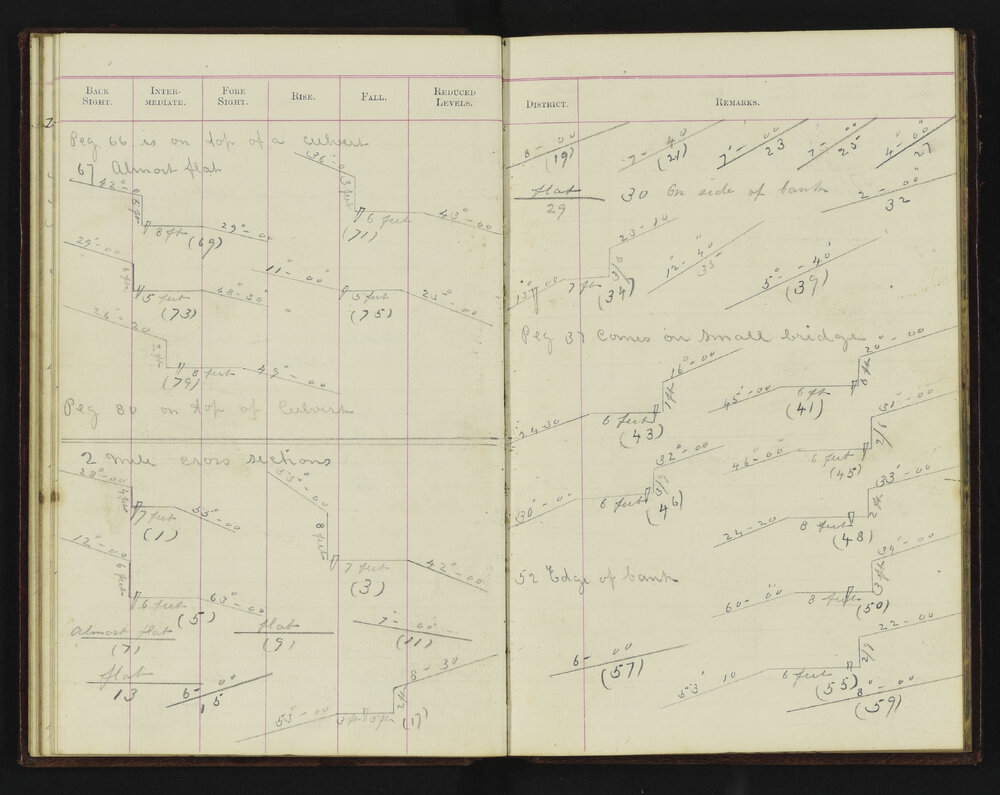 BACK SIGHT. INTER-MEDIATE. FORE SIGHT. RISE. FALL. REDUCED LEVELS.
Peg 66 is on top of a culvert
67 Almost flat
36°-0
3 feet
6 feet
(71)
43°-00
42°-0
8 ft
(69)
29°-00
29°-00
6 ft
5 feet
(73)
48°-30
11°-00
5 feet
(75)
23°-00
26°-20
2 ft
8 feet
(79)
49°-00
Peg 80 on top of Culvert
2 mile cross sections
28°-00
4 feet
7 feet
(1)
55°-00
55°-00
8 feet
7 feet
(3)
42°-00
12°-00
6 feet
6 feet
(5)
63°-00
Almost flat
(7)
flat
(9)
7°-00
(11)
flat
13
6-00
15
53°-00
3 ft
3 ft
2 ft
(17)
8-30
DISTRICT. REMARKS.
8-00
(19)
7-40
(21)
7°-00
23
7-00
25
4°-00
27
flat
29
30 On side of bank
2-00
32
13°00
7 ft
3/6
(34)
23-10
12°-40
35
5°-40
(39)
Peg 37 comes on small bridge
24-30
6 feet
(43)
1 ft
16°-00
45°-00
6 ft
(41)
6 ft
20°-00
30°-00
6 feet
(46)
32°-00
46°-00
6 feet
(45)
2/6
31°-00
24-20
8 feet
(48)
2 ft
33°-00
52 Edge of bank
60-00
8 feet
(50)
3 ft
34°-00
6-00
(57)
53°10
6 feet
(55)
2/9
22-00
8°-00
(59)